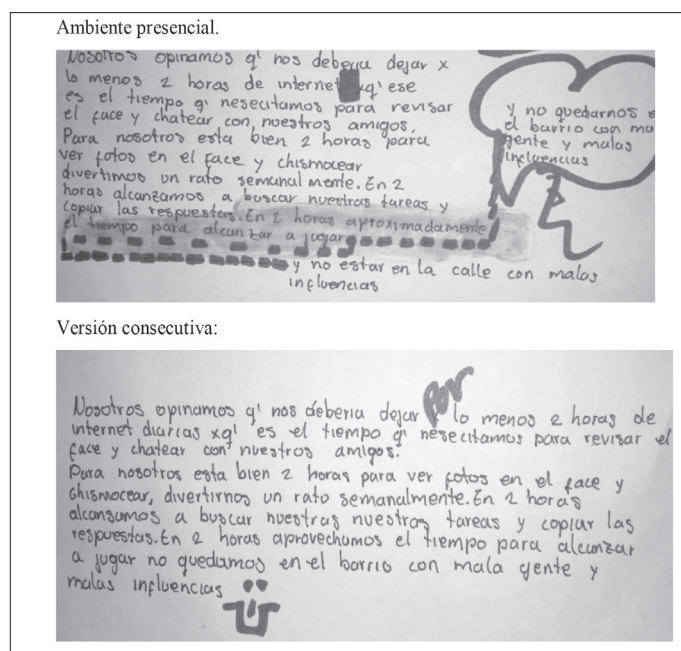 Ambiente presencial.
Nosotros opinamos q' nos deberia dejar x
lo menos 2 horas de internet xq' ese
es el tiempo q' nesecitamos para revisar
el face y chatear con nuestros amigos.
Para nosotros esta bien 2 horas para
ver fotos en el face y chismocear
divertirnos un rato semanal mente. En 2
horas alcanzamos a buscar nuestras tareas y
copiar las respuestas. En 2 horas aproximadamente
el tiempo para alcanzar a jugar
y no estar en la calle con malas
influencias
y no quedarnos
el barrio con
gente y malas
influencias
Versión consecutiva:
Nosotros opinamos q' nos deberia dejar por lo menos 2 horas de
internet diarias xq' es el tiempo q' nesecitamos para revisar el
face y chatear con nuestros amigos.
Para nosotros esta bien 2 horas para ver fotos en el face y
chismocear, divertirnos un rato semanalmente. En 2 horas
alcansamos a buscar nuestras nuestras tareas y copiar las
respuestas. En 2 horas aprovechamos el tiempo para alcanzar
a jugar no quedarnos en el barrio con mala gente y
malas influencias